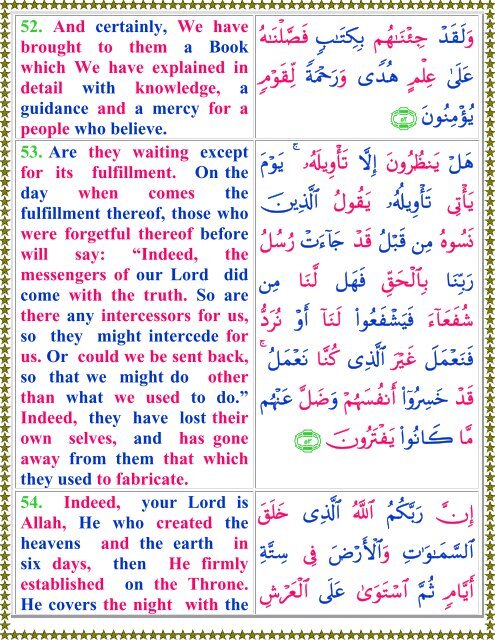 52. And certainly, We have
brought to them a Book
which We have explained in
detail with knowledge, a
guidance and a mercy for a
people who believe.
وَلَقَدْ جِئْنَٰهُم بِكِتَٰبٍ فَصَّلْنَٰهُ
عَلَىٰ عِلْمٍ هُدًى وَرَحْمَةً لِّقَوْمٍ
يُؤْمِنُونَ ٥٢
53. Are they waiting except
for its fulfillment. On the
day when comes the
fulfillment thereof, those who
were forgetful thereof before
will say: “Indeed, the
messengers of our Lord did
come with the truth. So are
there any intercessors for us,
so they might intercede for
us. Or could we be sent back,
so that we might do other
than what we used to do.”
Indeed, they have lost their
own selves, and has gone
away from them that which
they used to fabricate.
هَلْ يَنظُرُونَ إِلَّا تَأْوِيلَهُۥ ۚ يَوْمَ
يَأْتِى تَأْوِيلُهُۥ يَقُولُ ٱلَّذِينَ
نَسُوهُ مِن قَبْلُ قَدْ جَآءَتْ رُسُلُ
رَبِّنَا بِٱلْحَقِّ فَهَل لَّنَا مِن
شُفَعَآءَ فَيَشْفَعُوا۟ لَنَآ أَوْ نُرَدُّ
فَنَعْمَلَ غَيْرَ ٱلَّذِى كُنَّا نَعْمَلُ ۚ
قَدْ خَسِرُوٓا۟ أَنفُسَهُمْ وَضَلَّ عَنْهُم
مَّا كَانُوا۟ يَفْتَرُونَ ٥٣
54. Indeed, your Lord is
Allah, He who created the
heavens and the earth in
six days, then He firmly
established on the Throne.
He covers the night with the
إِنَّ رَبَّكُمُ ٱللَّهُ ٱلَّذِى خَلَقَ
ٱلسَّمَٰوَٰتِ وَٱلْأَرْضَ فِى سِتَّةِ
أَيَّامٍ ثُمَّ ٱسْتَوَىٰ عَلَى ٱلْعَرْشِ